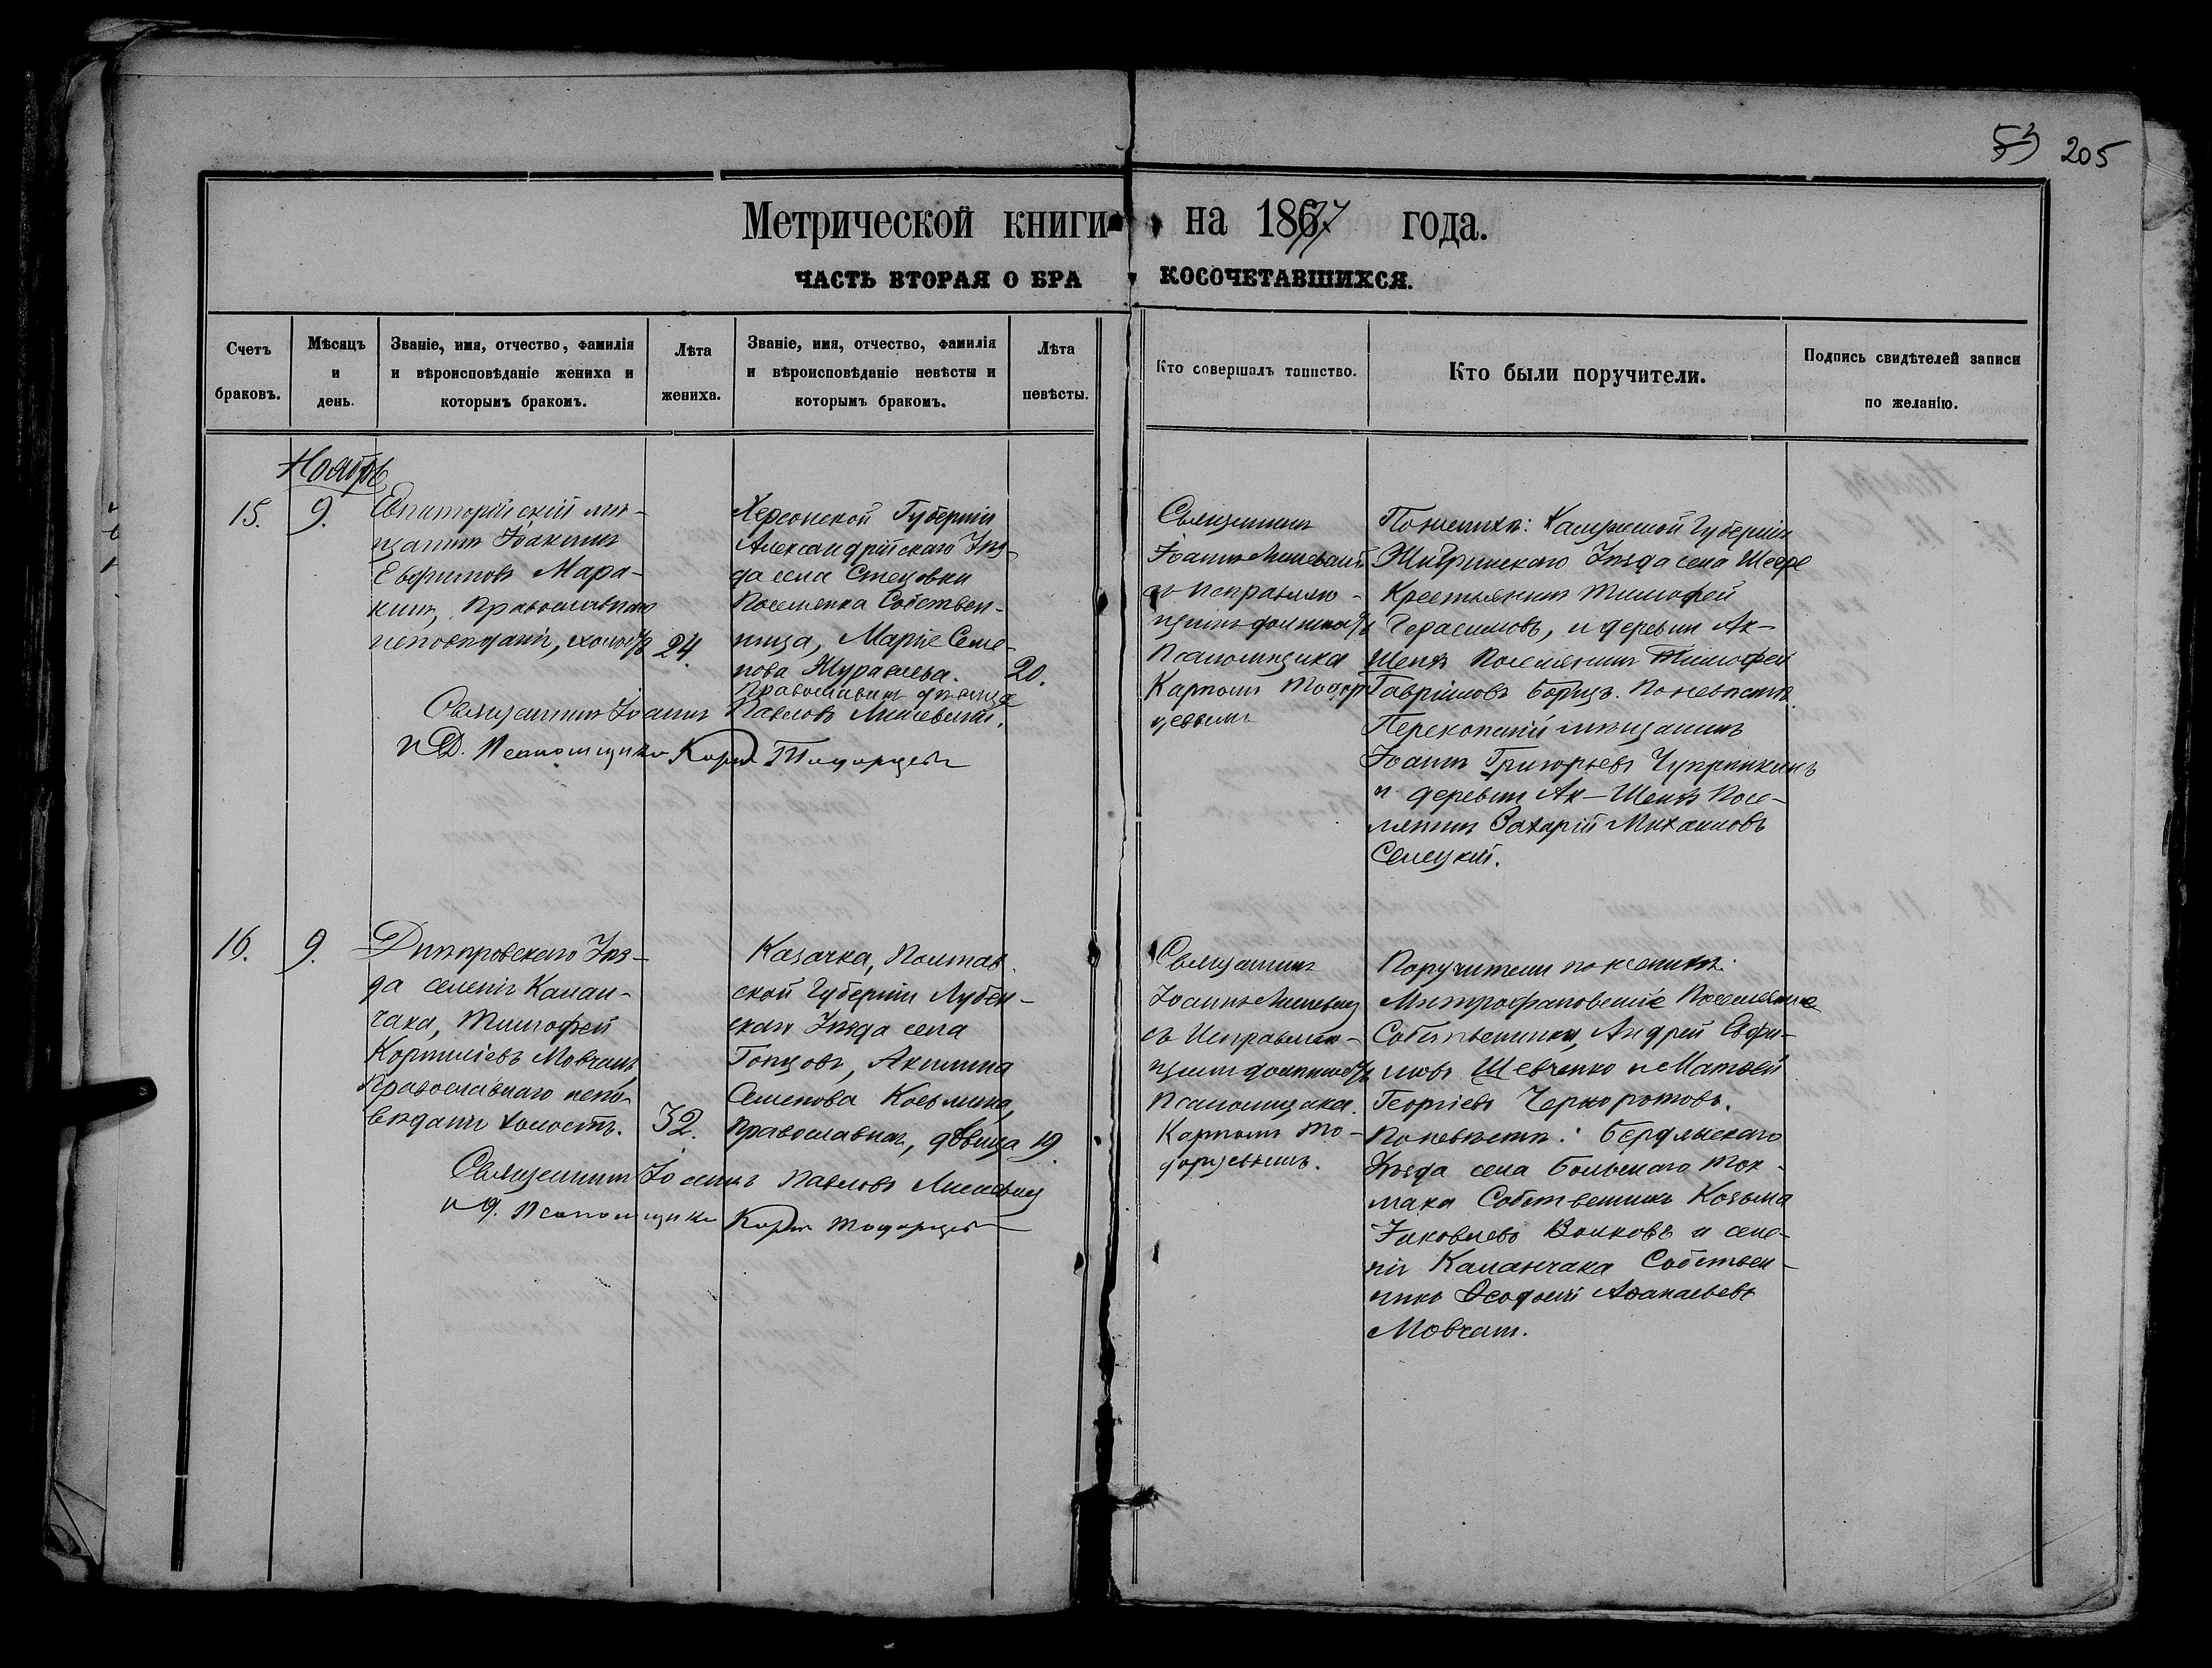 53 205
Метрической книги на 1877 года.
ЧАСТЬ ВТОРАЯ О БРАКОСОЧЕТАВШИХСЯ.
Счетъ браковъ.
Мѣсяцъ и день.
Званіе, имя, отчество, фамилія
и вѣроисповѣданіе жениха и
которымъ бракомъ.
Лѣта жениха.
Званіе, имя, отчество, фамилія
и вѣроисповѣданіе невѣсты и
которымъ бракомъ.
Лѣта невѣсты.
Кто совершалъ таинство.
Кто были поручители.
Подпись свидѣтелей записи
по желанію.
Ноябрь
15.
9.
Евпаторійскій мѣ-
щанинъ Іоакимъ
Евфимовъ Мара-
кинъ, Православнаго
исповѣданія,
24.
Херсонской Губерніи
Александрійскаго Уѣз-
да села Стецовки
Поселянка Собствен-
ница, Марія Семе-
нова Журавлева.
Православная дѣвица
20.
Священникъ Іоаннъ Павловъ
И Д. Псаломщика Карпъ Тодорцевъ
Священникъ
Іоаннъ
съ исправляю-
щимъ должность
Псаломщика
Карпомъ Тодор-
цевымъ
По женихѣ: Калужской Губерніи
Жиздринскаго Уѣзда села
Крестьянинъ Тимофей
Герасимовъ, и деревни Ак-
Шеихъ Поселянинъ Тимофей
Гавріиловъ По невѣстѣ
Перекопскій мѣщанинъ
Іоаннъ Григорьевъ Чупринкинъ
и деревни Ак-Шеихъ Посе-
лянинъ Захарій Михаиловъ
Селецкій.
16.
9.
Днѣпровскаго Уѣз-
да селенія Калан-
чака, Тимофей
Корниліевъ Мовчанъ,
Православнаго испо-
вѣданія холостъ.
32.
Казачка, Полтав-
ской Губерніи Лубен-
скаго Уѣзда села
Гонцовъ, Акилина
Семенова Козьмина,
православная, дѣвица
19.
Священникъ Іоаннъ Павловъ
И Д. Псаломщика Карпъ Тодорцевъ
Священникъ
Іоаннъ
съ Исправляю-
щимъ должность
Псаломщика
Карпомъ То-
дорцевымъ.
Поручители по женихѣ:
Митрофановскіе Поселяне
Собственники, Андрей Евфи-
мовъ Шевченко и Матвѣй
Георгіевъ Черноротовъ.
По невѣстѣ: Бердянскаго
Уѣзда села Большаго Ток-
мака Собственникъ Козьма
Іаковлевъ Волковъ и селе-
нія Каланчака Собствен-
никъ Ѳеодосій Аѳанасьевъ
Мовчанъ.